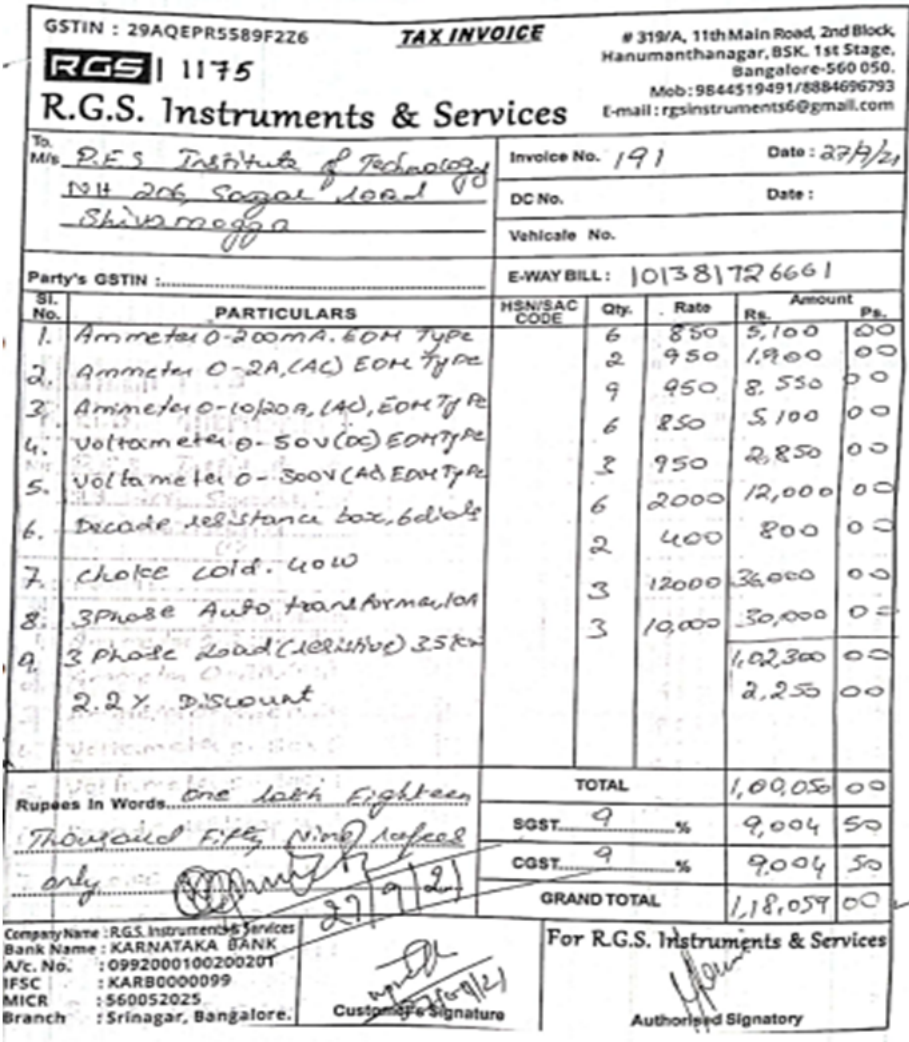 GSTIN : 29AQEPR5589F2Z6
TAX INVOICE
# 319/A, 11th Main Road, 2nd Block,
Hanumanthanagar, BSK. 1st Stage,
Bangalore-560 050.
Mob: 9844519491/8884696793
E-mail : rgsinstruments6@gmail.com
RGS 1175
R.G.S. Instruments & Services
To.
M/s P.E.S Institute of Technology
NH 206, Sagar road
Shivamogga
Invoice No. 191 Date : 27/9/21
DC No. Date :
Vehicale No.
Party's GSTIN :
E-WAY BILL : 101381726661
Sl. No. PARTICULARS HSN/SAC CODE Qty. Rate Amount Rs. Ps.
1. Ammeter 0-200mA. EDM Type 6 850 5,100 00
2. Ammeter 0-2A, (AC) EDM Type 2 950 1,900 00
3. Ammeter 0-10/20A, (AC), EDM Type 9 950 8,550 00
4. Voltameter 0-50V (DC) EDM Type 6 850 5,100 00
5. Voltameter 0-300V (AC) EDM Type 3 950 2,850 00
6. Decade resistance box, 6dials 6 2000 12,000 00
7. choke 40W 2 400 800 00
8. 3Phase Auto transformer 3 12000 36,000 00
9. 3 Phase Load (resistive) 3.5kw 3 10,000 30,000 00
1,02,300 00
2.2% Discount 2,250 00
Rupees In Words One lakh Eighteen
Thousand Fifty Nine rupees
only
TOTAL 1,00,050 00
SGST 9 % 9,004 50
CGST 9 % 9,004 50
GRAND TOTAL 1,18,059 00
27/9/21
Company Name : R.G.S. Instruments & Services
Bank Name : KARNATAKA BANK
A/c. No. : 0992000100200201
IFSC : KARB0000099
MICR : 560052025
Branch : Srinagar, Bangalore.
Customer's Signature
For R.G.S. Instruments & Services
Authorised Signatory